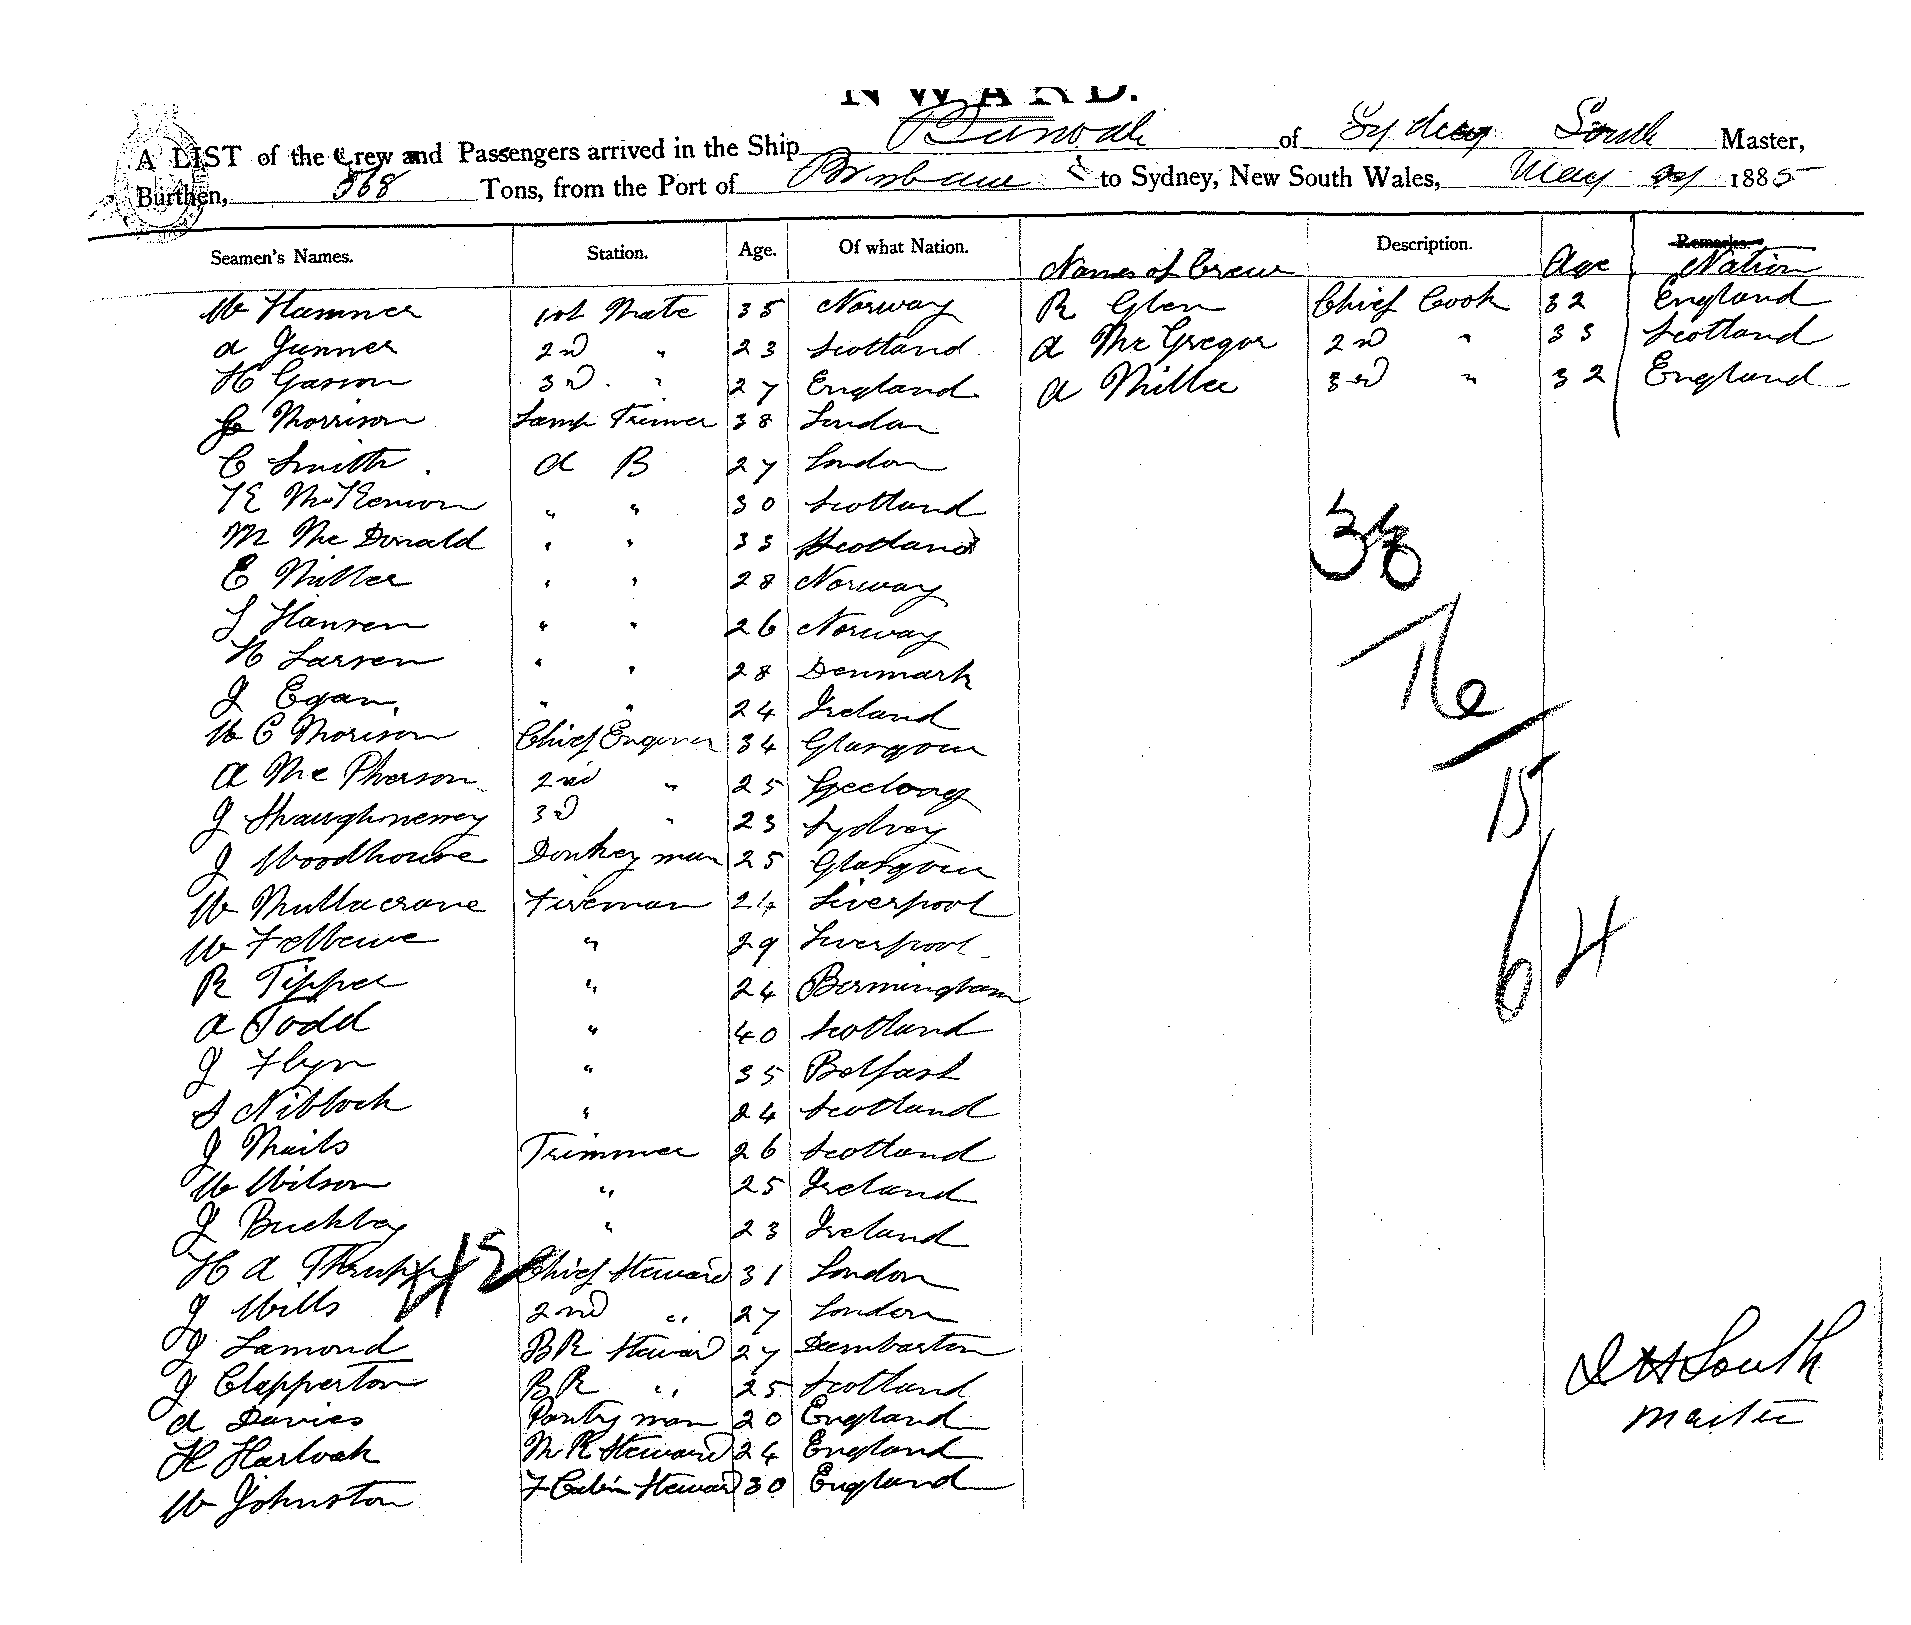 NWARD.
A LIST of the Crew and Passengers arrived in the Ship of Sydney South Master,
Burthen, 568 Tons, from the Port of Brisbane to Sydney, New South Wales, May 1885
Seamen's Names. Station. Age. Of what Nation. Names of Crew Description. Age Remarks Nation
W Hamner 1st Mate 35 Norway R Glen Chief Cook 32 England
A Gunner 2nd " 23 Scotland A McGregor 2nd " 33 Scotland
H Gasson 3rd " 27 England A Miller 3rd " 32 England
Morrison Lamp Trimer 38 London
C Smith A B 27 London
" " 30 Scotland
M McDonald " " 33 Scotland
E Miller " " 28 Norway
Hansen " " 26 Norway
H Larsen " " 28 Denmark
J Egan " " 24 Ireland
W C Morison Chief Engineer 34 Glasgow
A McPherson 2nd " 25 Geelong
J Shaughnessy 3rd " 23 Sydney
J Woodhouse Donkey man 25 Glasgow
W Mullacrane Fireman 24 Liverpool
W " 29 Liverpool
R Tipper " 24 Bermingham
A Todd " 40 Scotland
J Flyn " 35 Belfast
Niblock " 24 Scotland
J Trimmer 26 Scotland
W Wilson " 25 Ireland
J Buckley " 23 Ireland
H A Chief Steward 31 London
J Wills 2nd " 27 London
J Lamond BR Steward 27 Dumbarton
J Clapperton BR " 25 Scotland
A Davies Pantry man 20 England
H Harlock M R Steward 24 England
W Johnston F Cabin Steward 30 England
15
64
South
Master